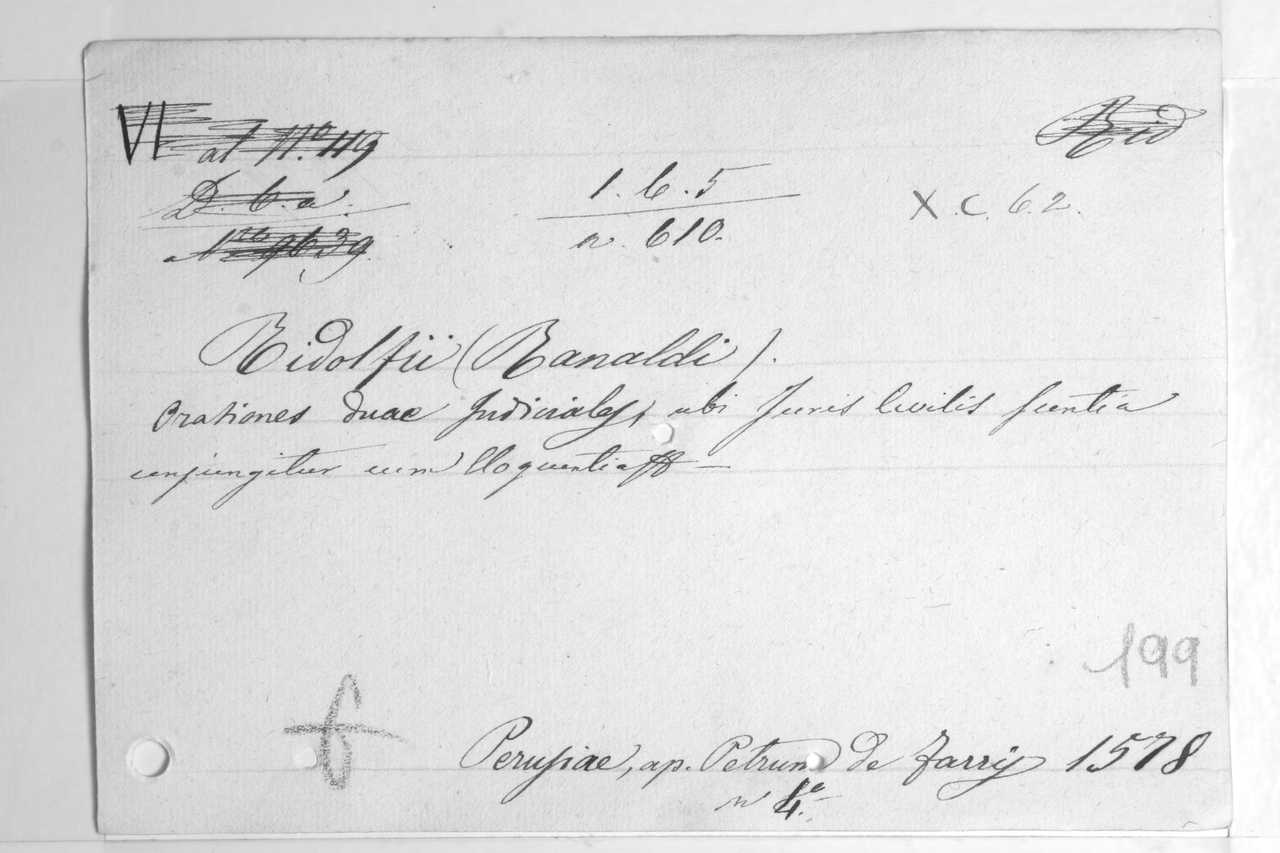 VI at N.º 119
Rid
D. 6. a.
1. 6. 5
X.C. 6.2.
n. 610.
Ridolfii (Ranaldi).
Orationes duae Judiciales, ubi Juris Civilis scientia
conjungitur cum Eloquentia
199
6
Perusiae, ap. Petrum de Zarrij 1578
in 4.º